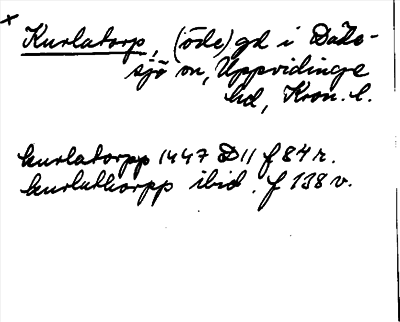 x
Kurlatorp, (öde) gd i Dädesjö
sn, Uppvidinge
hd, Kron. l.
kurlatorpp 1447 D 11 f 84 r.
kurlathorpp ibid. f 138 v.